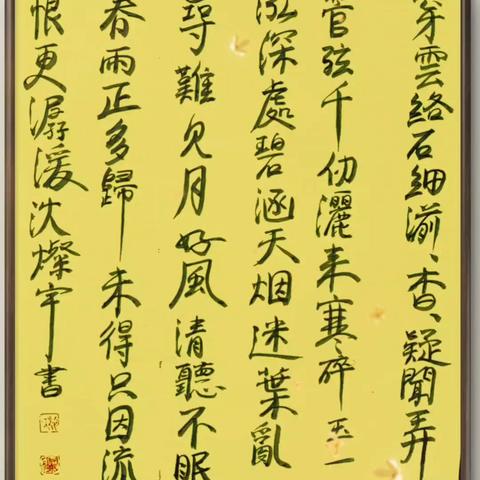 穿雲絡石細湔、杳、疑聞弄
管弦千仞灑来寒碎玉一
泓深處碧涵天烟迷葉亂
尋難見月好風清聽不眠
春雨正多歸未得只因流
恨更潺湲沈燦宇書